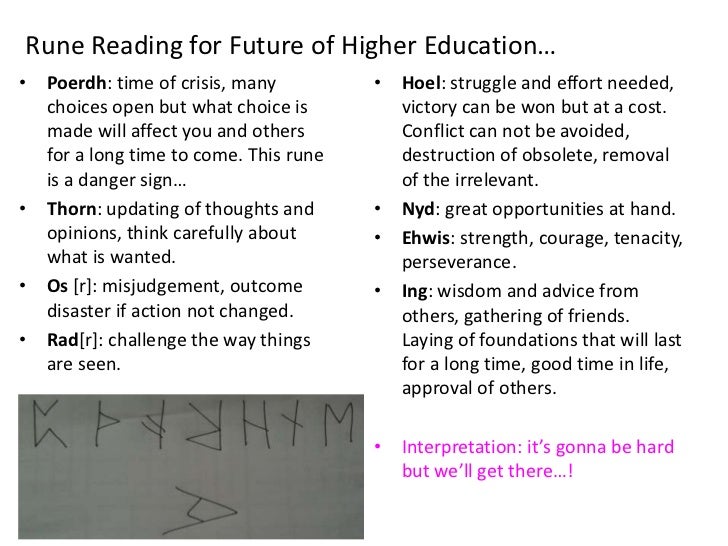 Rune Reading for Future of Higher Education…
• Poerdh: time of crisis, many
choices open but what choice is
made will affect you and others
for a long time to come. This rune
is a danger sign…
• Thorn: updating of thoughts and
opinions, think carefully about
what is wanted.
• Os [r]: misjudgement, outcome
disaster if action not changed.
• Rad[r]: challenge the way things
are seen.
• Hoel: struggle and effort needed,
victory can be won but at a cost.
Conflict can not be avoided,
destruction of obsolete, removal
of the irrelevant.
• Nyd: great opportunities at hand.
• Ehwis: strength, courage, tenacity,
perseverance.
• Ing: wisdom and advice from
others, gathering of friends.
Laying of foundations that will last
for a long time, good time in life,
approval of others.
• Interpretation: it’s gonna be hard
but we’ll get there…!